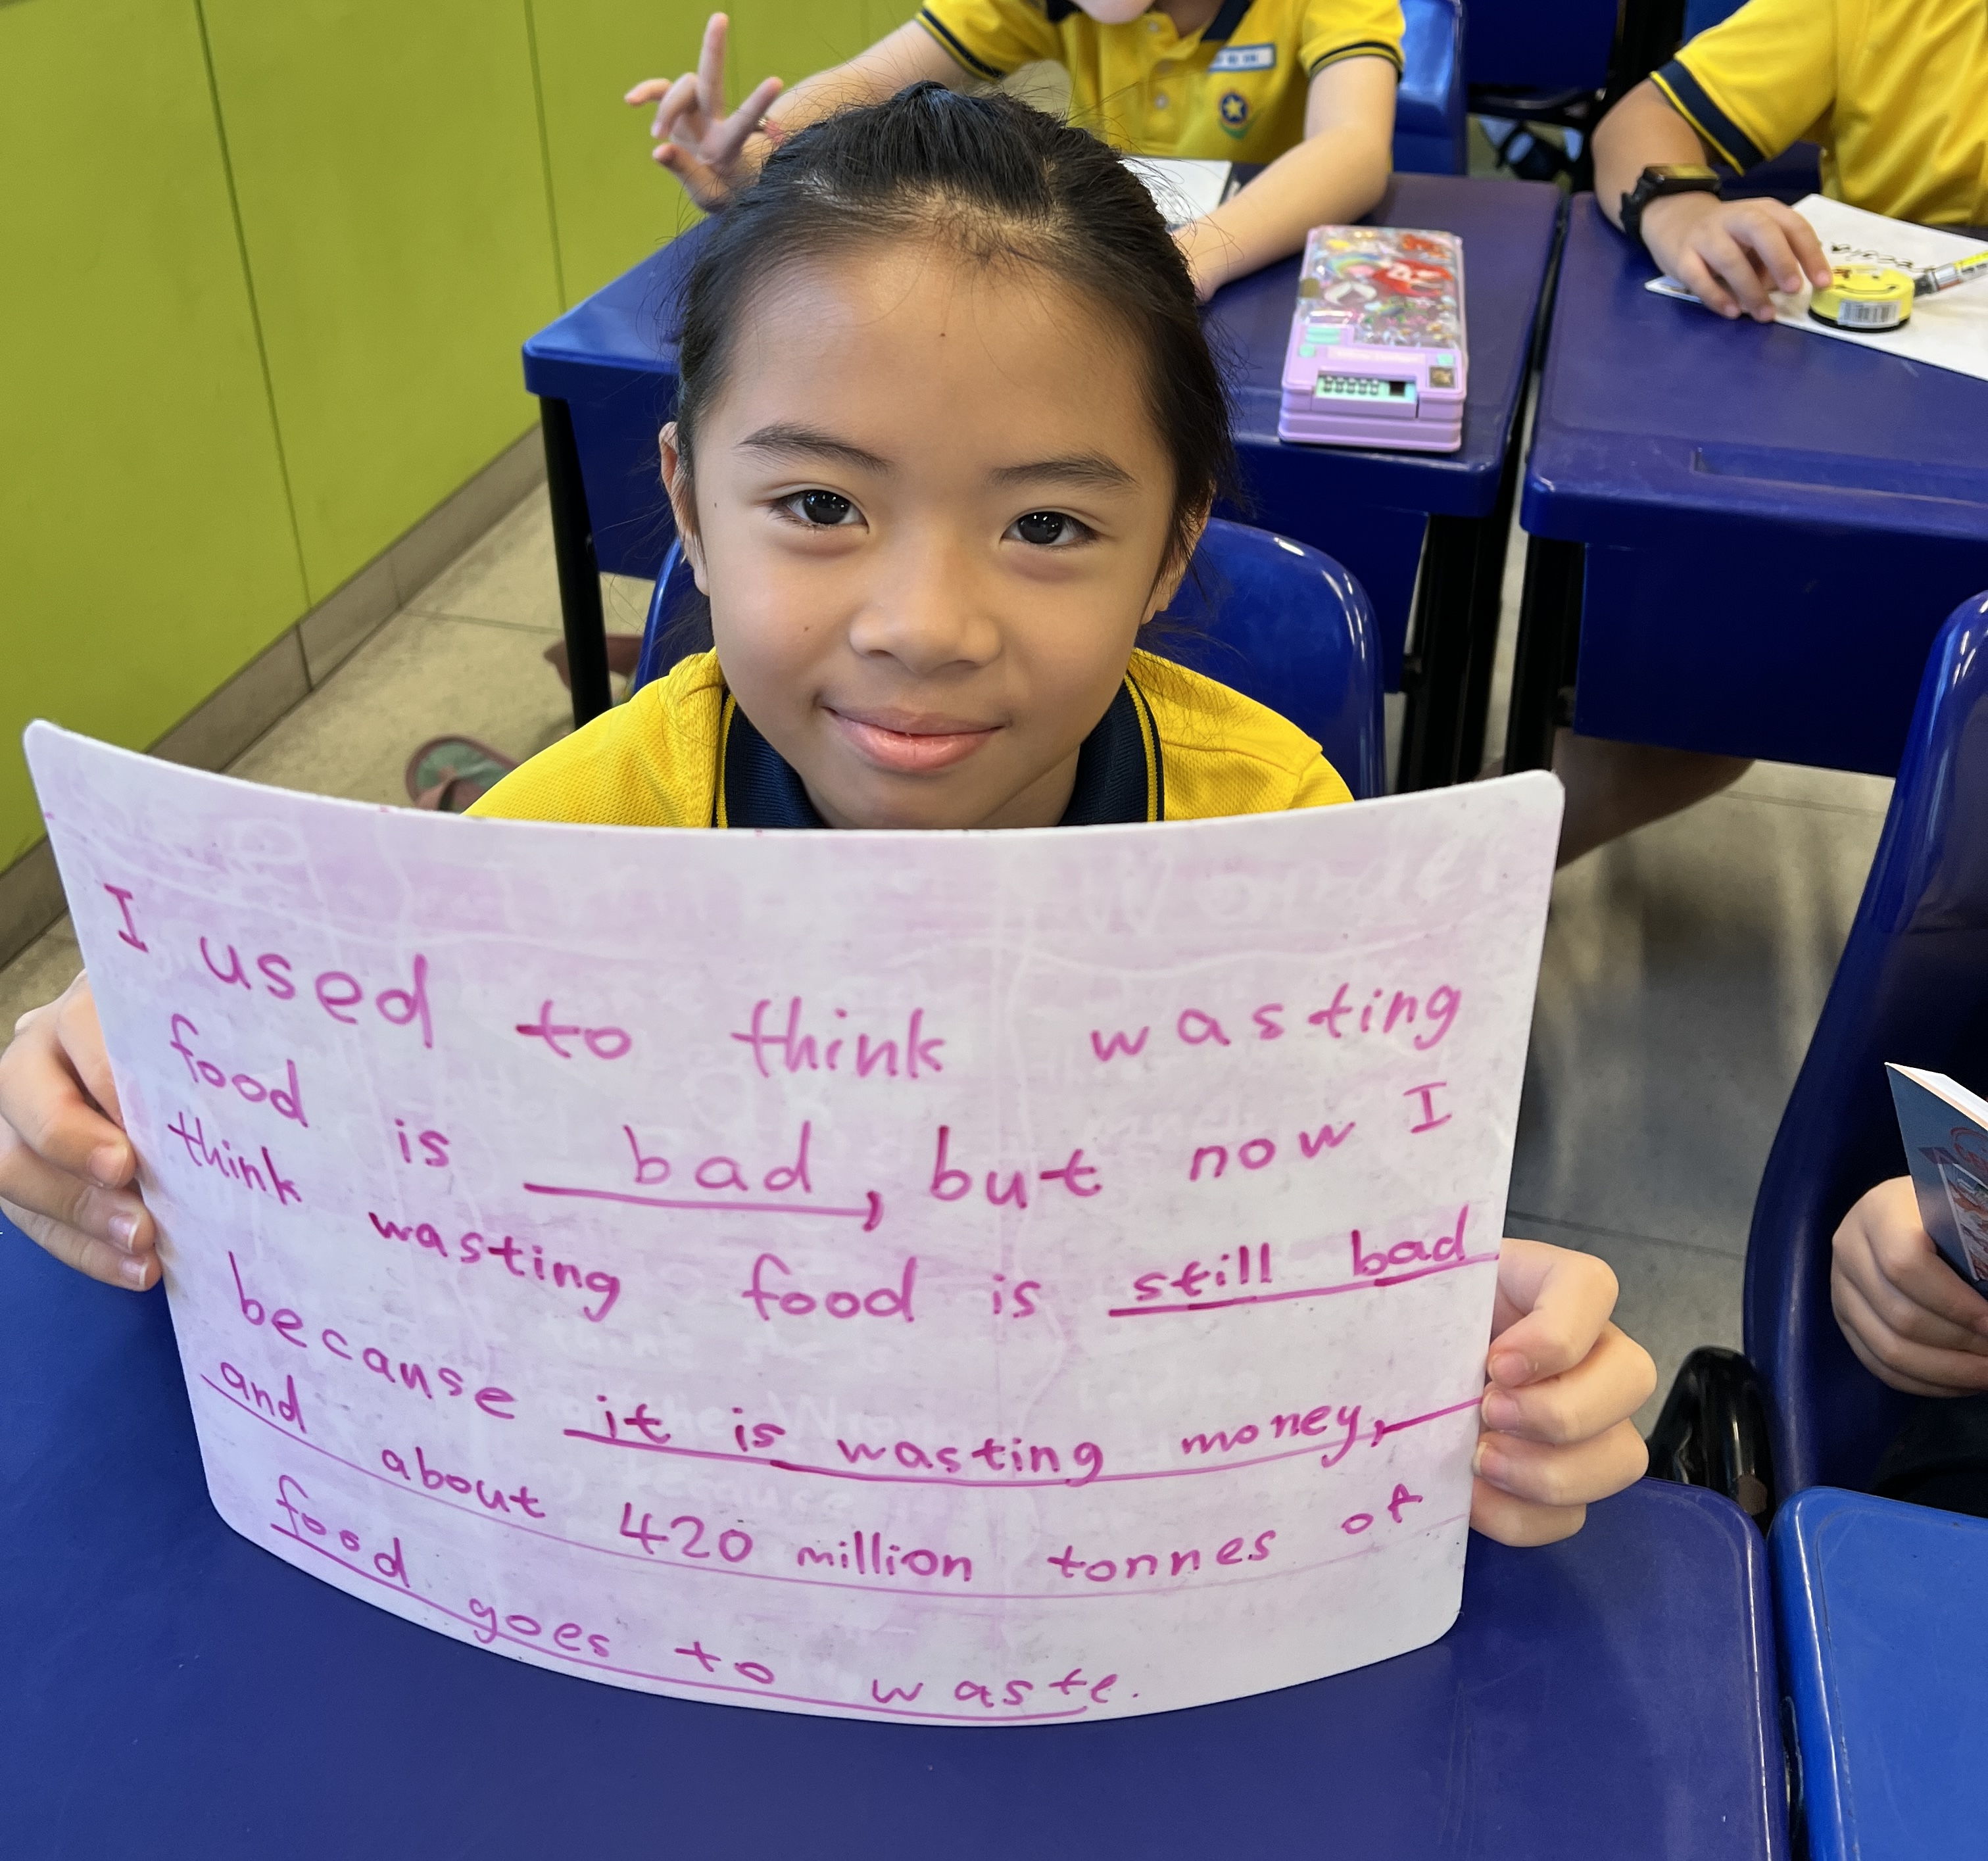 I used to think wasting
food is bad, but now I
think wasting food is still bad
because it is wasting money,
and about 420 million tonnes of
food goes to waste.